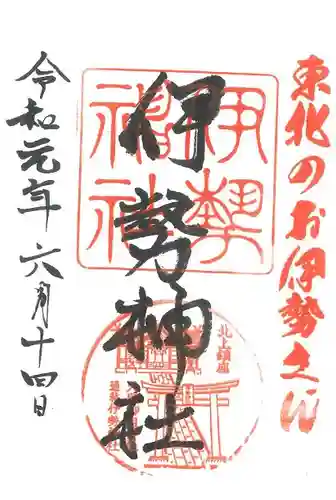 東北のお伊勢さん
伊勢神社
伊勢神社
北上鎮座
令和元年六月十四日